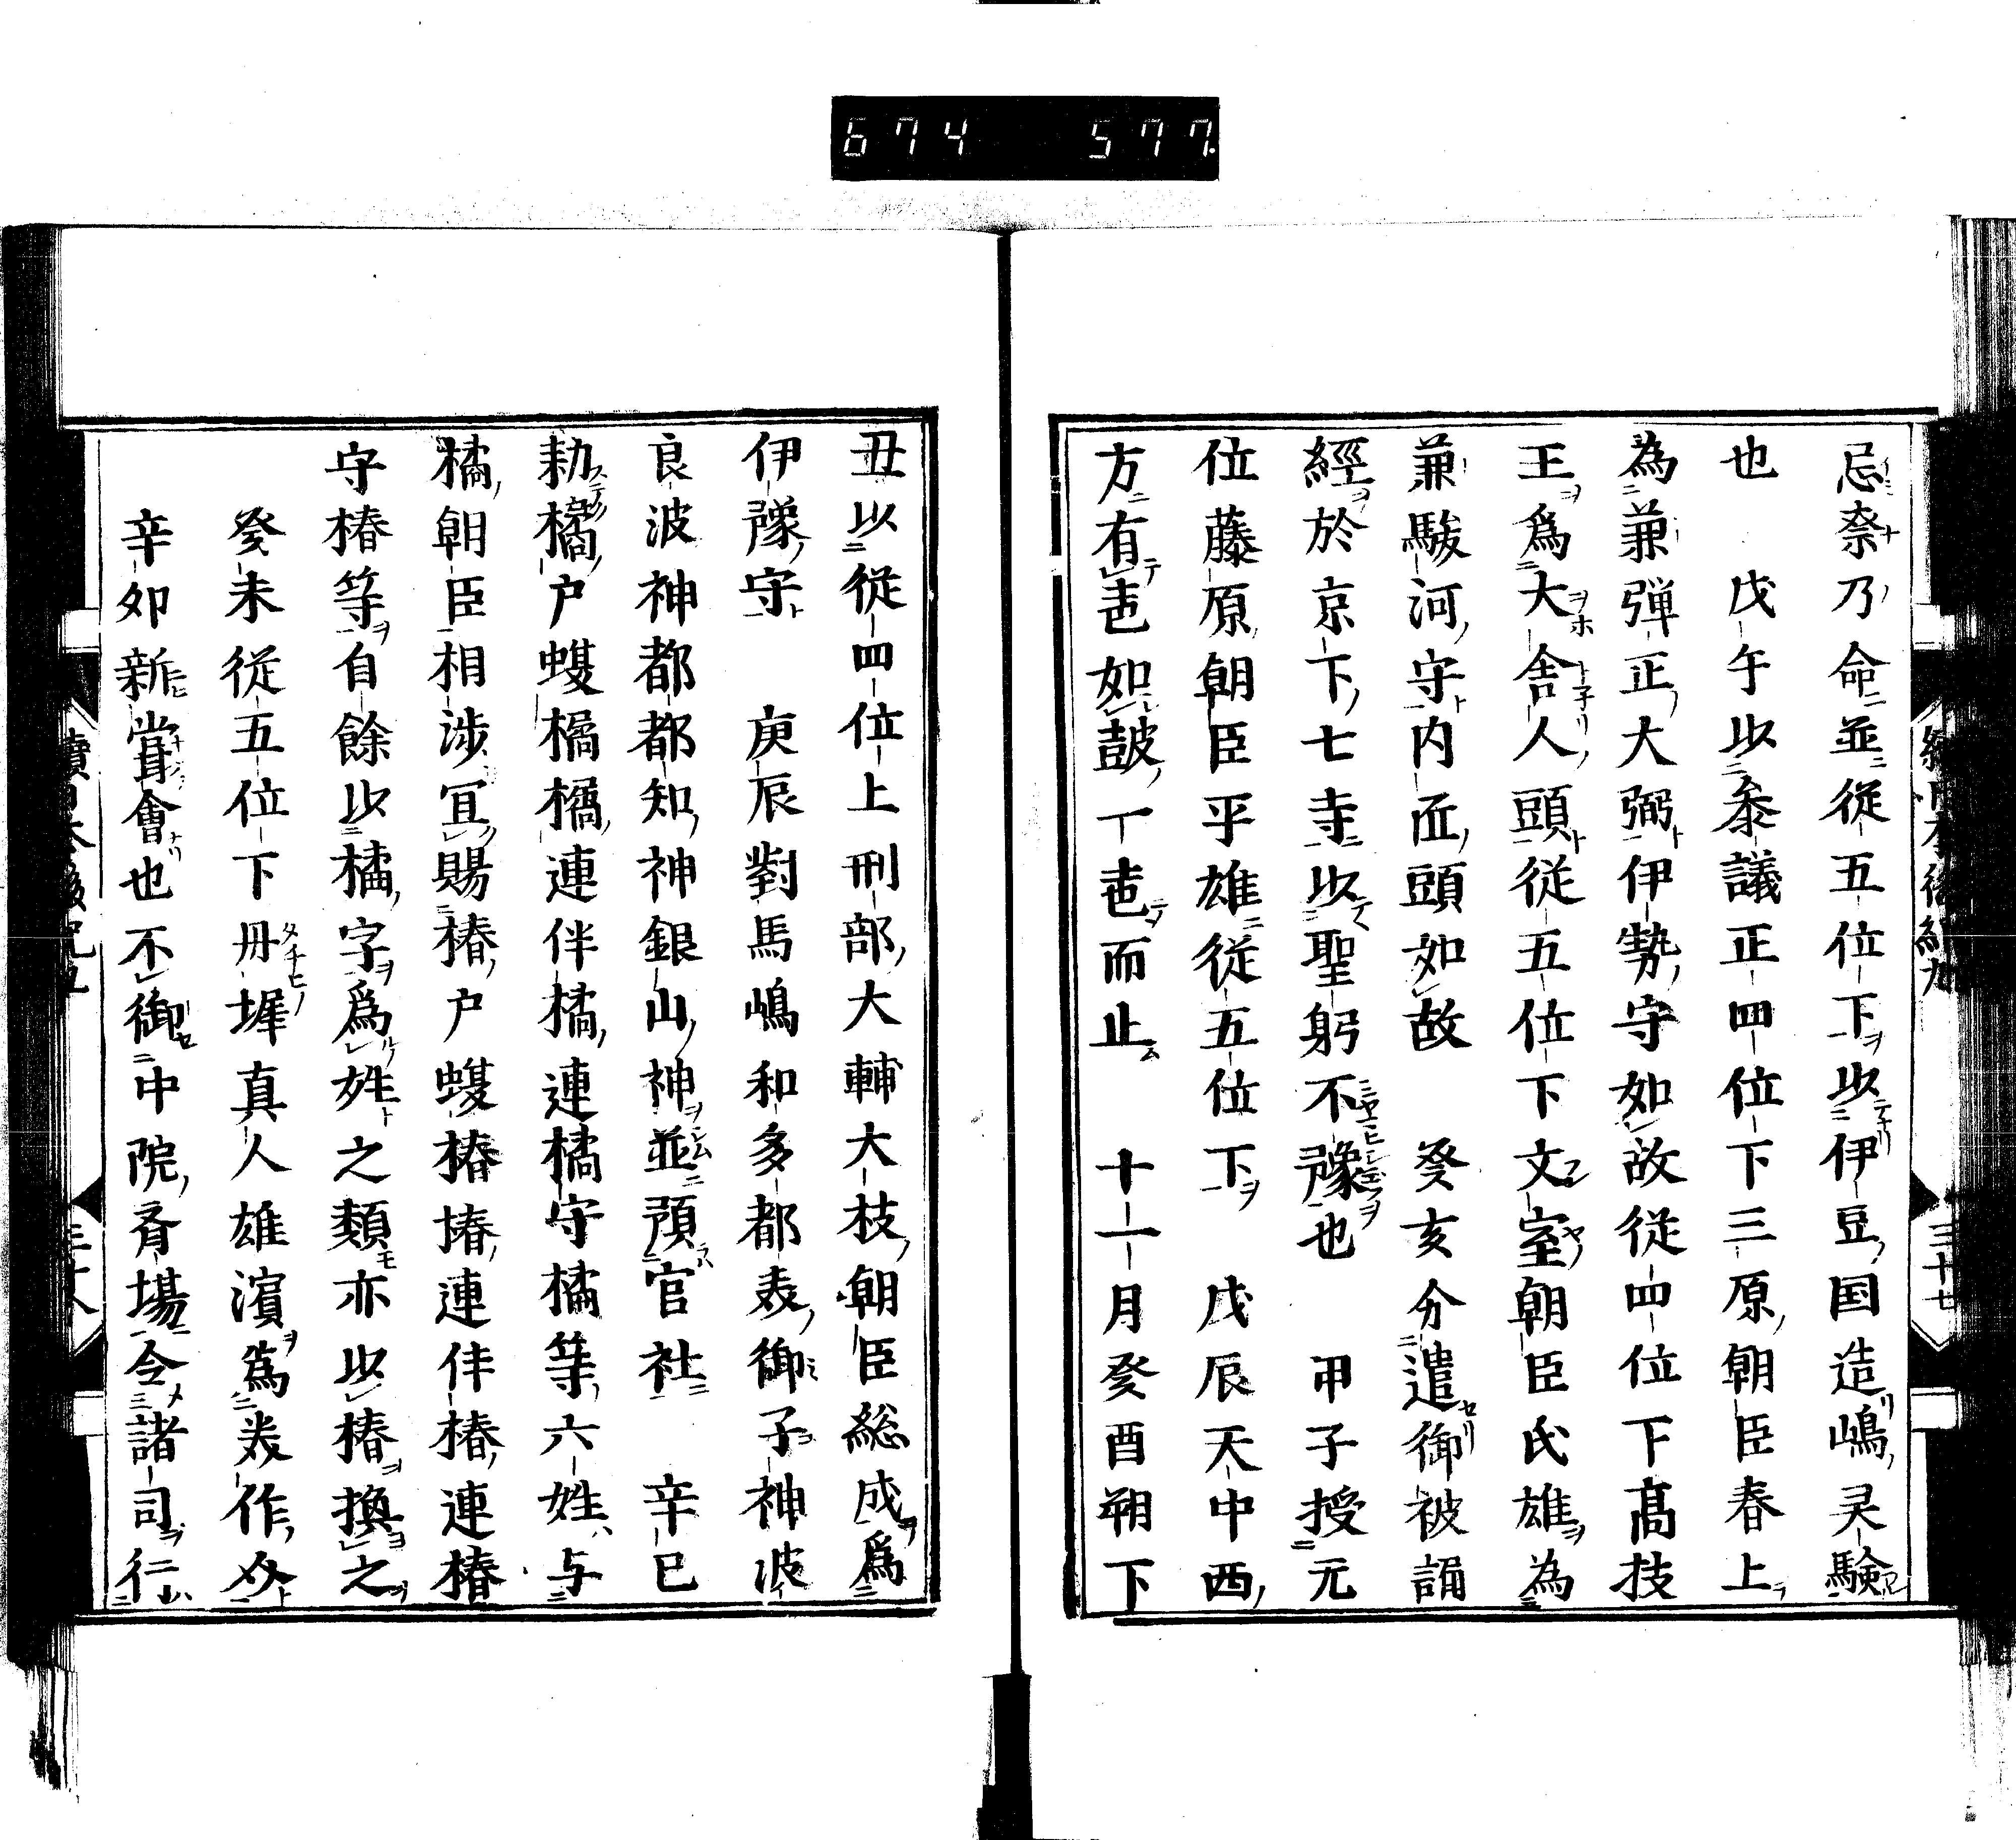 674 577.
忌奈乃命並従五位下以伊豆国造嶋灵験
也　戊午以參議正四位下三原朝臣春上
為兼弾正大弼伊勢守如故従四位下髙技
王爲大舎人頭従五位下文室朝臣氏雄為
兼駿河守内匠頭如故　癸亥分遣御被誦
經於京下七寺以聖躬不豫也　甲子授元
位藤原朝臣平雄従五位下　戊辰天中西
方有声如鼓一声而止　十一月癸酉朔丁
丑以従四位上刑部大輔大枝朝臣総成爲
伊豫守　庚辰對馬嶋和多都美御子神波
良波神都都知神銀山神並預官社　辛巳
勅橘戸蝮橘橘連伴橘連橘守橘等六姓与
橘朝臣相渉冝賜椿戸蝮椿椿連伴椿連椿
守椿等自餘以橘字爲姓之類亦以椿換之
癸未従五位下丹墀真人雄濱爲美作介
辛卯新嘗會也不御中院脊場令諸司行
三十七